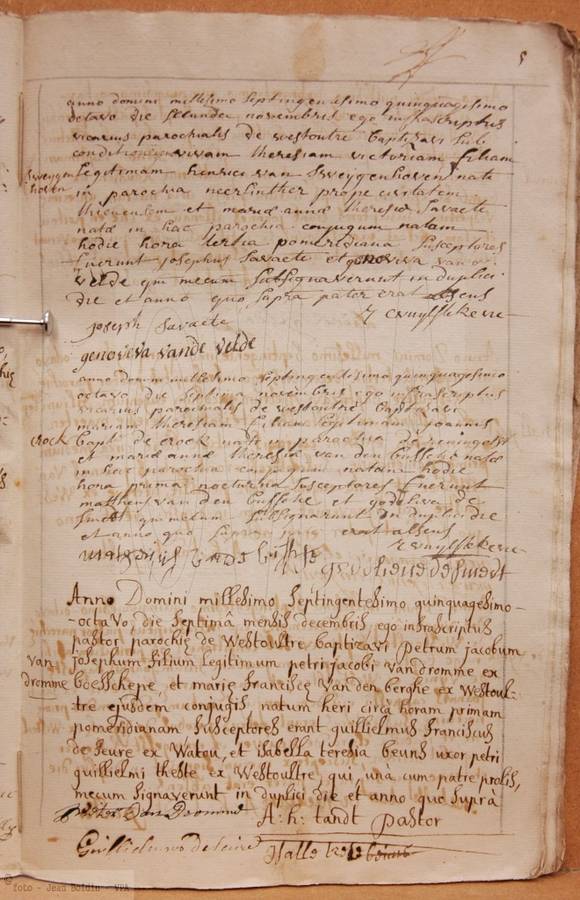 5
anno domini millesimo septingentesimo quinquagesimo
octavo die secunda novembris ego infrascriptus
vicarius parochialis de westoutre baptizavi sub
conditione vivam theresiam victoriam filiam
Sweygen
hoven
legitimam henrici van Sweygenhoven nati
in parochia neerlinther prope civitatem
thienensem et mariæ annæ theresiæ Savaete
natæ in hac parochia conjugum natam
hodie hora tertia pomeridiana Susceptores
fuerunt josephus Savaete et genoviva van
velde qui mecum subsignaverunt in duplici
die et anno quo supra pater erat absens
joseph Savaete
genoveva vande velde
anno domini millesimo septingentesimo quinquagesimo
octavo die septima novembris ego infrascriptus
vicarius parochialis de westoutre baptizavi
mariam theresiam filiam legitimam joannis
crock
bapt de crock nati in parochia de reningelst
et mariæ annæ theresiæ van den bussche natæ
in hac parochia conjugum natam hodie
hora prima nocturna susceptores fuerunt
mattheus van den bussche et godeliva de
Smedt qui mecum subsignarunt in duplici die
et anno quo supra erat absens
desmedt
Anno Domini millesimo Septingentesimo quinquagesimo-
-octavo, die Septimâ mensis decembris, ego infrascriptus
pastor parochię de Westoultre baptizavi petrum jacobum
van
dromme
josephum filium legitimum petri jacobi vandromme ex
boesschepe, et marię franciscę Vanden berghe ex Westoul-
tre ejusdem conjugis, natum heri circà horam primam
pomeridianam Susceptores erant guillielmus franciscus
de feure ex Watou, et isabella teresia beuns uxor petri
guillielmi theste ex Westoultre, qui, unà cum patre prolis,
mecum signaverunt in duplici die et anno quo suprà
pieter van Dromme
A: h: tandt pastor
Guillielmus
beuns
© foto - Jean Bordin - VPA